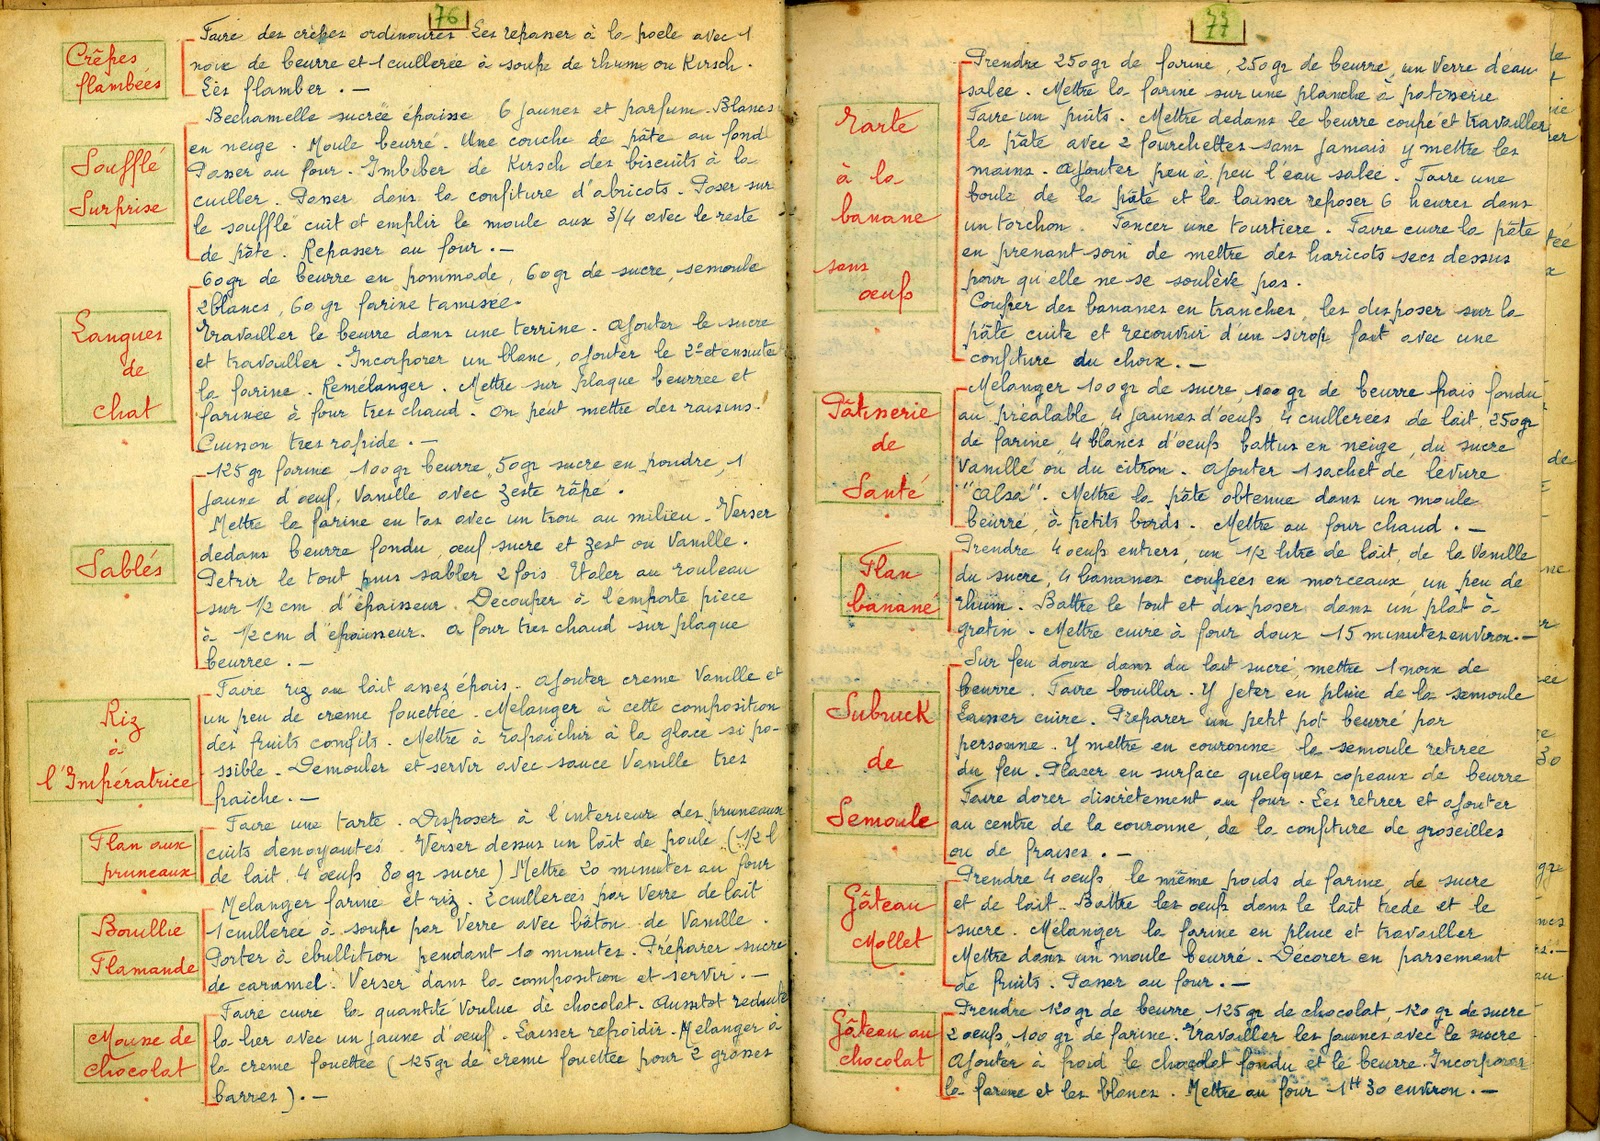 76
Crêpes
flambées
Faire des crêpes ordinaires. Les repasser à la poele avec 1
noix de beurre et 1 cuillerée à soupe de rhum ou Kirsch.
Les flamber. —
Soufflé
Surprise
Bechamelle sucrée épaisse 6 jaunes et parfum. Blancs
en neige. Moule beurré. Une couche de pâte au fond
Passer au four. Imbiber de Kirsch des biscuits à la
cuiller. Passer dans la confiture d'abricots. Poser sur
le soufflé cuit et emplir le moule aux 3/4 avec le reste
de pâte. Repasser au four. —
Langues
de
chat
60gr de beurre en pommade, 60gr de sucre, semoule
2 blancs, 60 gr farine tamisée.
Travailler le beurre dans une terrine. Ajouter le sucre
et travailler. Incorporer un blanc, ajouter le 2e et ensuite
la farine. Remélanger. Mettre sur plaque beurrée et
farinée à four tres chaud. On peut mettre des raisins.
Cuisson tres rapide. —
Sablés
125gr farine, 100gr beurre, 50gr sucre en poudre, 1
jaune d'oeuf, Vanille avec zeste râpé.
Mettre la farine en tas avec un trou au milieu. Verser
dedans beurre fondu, oeuf sucre et zest ou Vanille.
Petrir le tout puis sabler 2 fois. Etaler au rouleau
sur 1/2 cm d'épaisseur. Decouper à l'emporte piece
à 1/2 cm d'épaisseur. A four tres chaud sur plaque
beurree. —
Riz
à
l'Impératrice
Faire riz au lait assez épais. Ajouter creme Vanille et
un peu de creme fouettée. Melanger à cette composition
des fruits confits. Mettre à rafraichir à la glace si po-
ssible. Demouler et servir avec sauce Vanille tres
fraiche. —
Flan aux
pruneaux
Faire une tarte. Disposer à l'interieur des pruneaux
cuits denoyautés. Verser dessus un lait de poule (1/2 l
de lait, 4 oeufs 80gr sucre) Mettre 20 minutes au four
Bouillie
Flamande
Melanger farine et riz. 2 cuillerees par Verre de lait
1 cuilleree à soupe par Verre avec bâton de Vanille.
Porter à ébullition pendant 10 minutes. Préparer sucre
de caramel. Verser dans la composition et servir. —
Mousse de
chocolat
Faire cuire la quantité Voulue de chocolat. Aussitot reduite
la lier avec un jaune d'oeuf. Laisser refroidir. Melanger à
la creme fouettée (125gr de creme fouettée pour 2 grosses
barres). —
77
77
Tarte
à la
banane
sans
oeufs
Prendre 250gr de farine, 250gr de beurre, un Verre d'eau
salée. Mettre la farine sur une planche à patisserie
Faire un puits. Mettre dedans le beurre coupé et travailler
la pâte avec 2 fourchettes sans jamais y mettre les
mains. Ajouter peu à peu l'eau salée. Faire une
boule de la pâte et la laisser reposer 6 heures dans
un torchon. Foncer une tourtiere. Faire cuire la pâte
en prenant soin de mettre des haricots secs dessus
pour qu'elle ne se soulève pas.
Couper des bananes en tranches, les disposer sur la
pâte cuite et recouvrir d'un sirop fait avec une
confiture du choix. —
Pâtisserie
de
Santé
Mélanger 100gr de sucre, 100gr de beurre frais fondu
au préalable, 4 jaunes d'oeufs 4 cuillerées de lait, 250gr
de farine, 4 blancs d'oeufs battus en neige, du sucre
Vanillé ou du citron. Ajouter 1 sachet de levure
"Calsa". Mettre la pâte obtenue dans un moule
beurré, à petits bords. Mettre au four chaud. —
Flan
banané
Prendre 4 oeufs entiers, un 1/2 litre de lait, de la Vanille
du sucre, 4 bananes coupées en morceaux, un peu de
rhum. Battre le tout et disposer dans un plat à
gratin. Mettre cuire à four doux 15 minutes environ. —
Subruck
de
Semoule
Sur feu doux dans du lait sucré, mettre 1 noix de
beurre. Faire bouillir. Y jeter en pluie de la semoule
Laisser cuire. Preparer un petit pot beurré par
personne. Y mettre en couronne la semoule retirée
du feu. Placer en surface quelques copeaux de beurre
Faire dorer discrètement au four. Les retirer et ajouter
au centre de la couronne, de la confiture de groseilles
ou de fraises. —
Gâteau
Mollet
Prendre 4 oeufs le même poids de farine, de sucre
et de lait. Battre les oeufs dans le lait tiede et le
sucre. Mélanger la farine en pluie et travailler
Mettre dans un moule beurré. Décorer en parsemant
de fruits. Passer au four. —
Gâteau au
chocolat
Prendre 120gr de beurre, 125gr de chocolat, 120gr de sucre
2 oeufs, 100 gr de farine. Travailler les jaunes avec le sucre
Ajouter à froid le chocolat fondu et le beurre. Incorporer
la farine et les blancs. Mettre au four 1H 30 environ. —